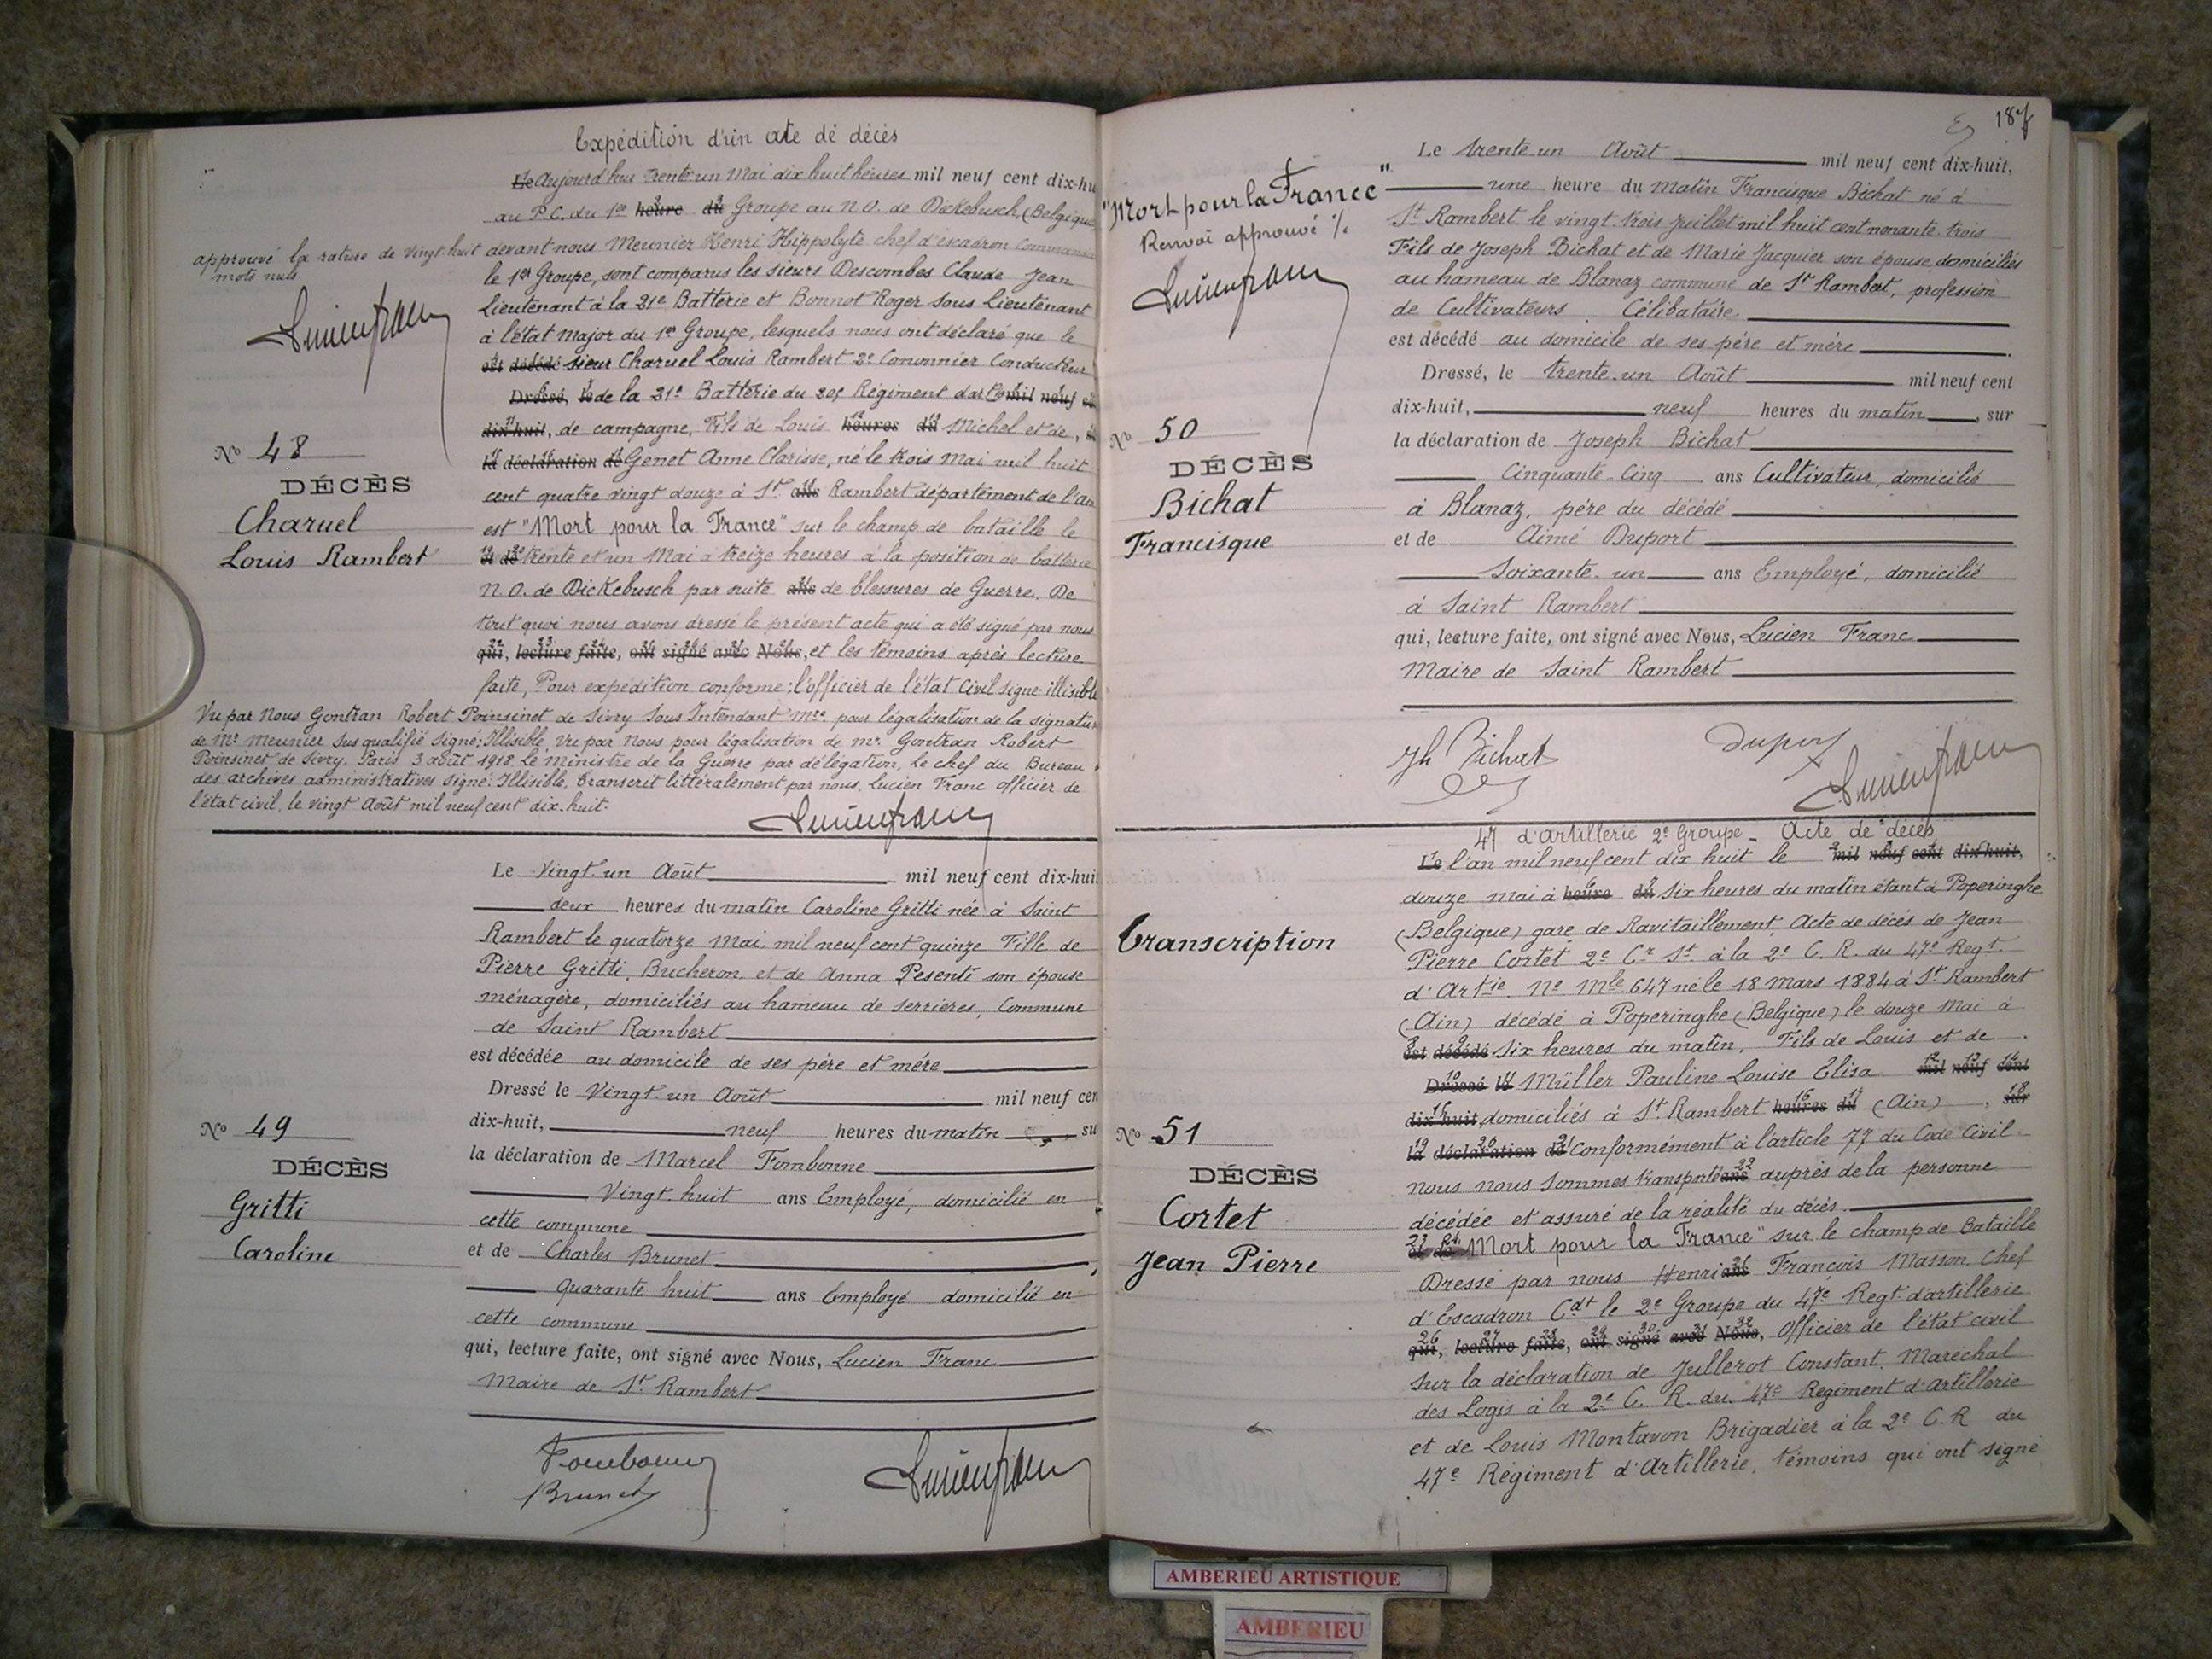 Expédition d'un acte de décès
Le Aujourd'hui trente un Mai dix huit heures mil neuf cent dix-hu
au P.C. du 1er heure du Groupe au N.O. de Dickebusch (Belgique
approuvé la rature de vingt-huit
mots nuls
devant nous Meunier Henri Hippolyte chef d'escadron
le 1er Groupe, sont comparus les sieurs Descombes Claude Jean
Lieutenant à la 21e Batterie et Bonnot Roger Sous Lieutenant
à l'état Major du 1er Groupe, lesquels nous ont déclaré que le
est décédé sieur Charuel Louis Rambert 2e Canonnier Conducteur
Dressé, le de la 21e Batterie du Régiment d'artie mil neuf
dix-huit, de campagne, Fils de Louis heures du Michel et de,
la déclaration de Genet Anne Clarisse, né le trois Mai mil huit
cent quatre vingt douze à St. ans Rambert département de l'Ain
est "Mort pour la France" sur le champ de bataille le
et de trente et un Mai à treize heures à la position de batterie
N.O. de Dickebusch par suite ans de blessures de Guerre. De
tout quoi nous avons dressé le présent acte qui a été signé par nous
qui, lecture faite, ont signé avec Nous, et les témoins après lecture
faite, Pour expédition conforme: l'officier de l'état Civil signé: illisible
Vu par Nous Gontran Robert Poinsinet de Sivry Sous Intendant Mre pour légalisation de la signature
de Mr Meunier sus qualifié signé: Illisible, Vu par Nous pour légalisation de Mr. Gontran Robert
Poinsinet de Sivry. Paris 3 août 1918. Le Ministre de la Guerre par délégation, le chef du Bureau
des archives administratives signé: Illisible, transcrit littéralement par nous, Lucien Franc officier de
l'état civil, le vingt Août mil neuf cent dix-huit.
No 48
DÉCÈS
Charuel
Louis Rambert
Lucien franc
Lucien franc
Le Vingt-un Août mil neuf cent dix-hui
deux heures du matin Caroline Gritti née à Saint
Rambert le quatorze Mai mil neuf cent quinze Fille de
Pierre Gritti, Bucheron, et de Anna Pesenti son épouse
ménagère, domiciliés au hameau de Serrieres, Commune
de Saint Rambert
est décédée au domicile de ses père et mère
Dressé le Vingt-un Août mil neuf cen
dix-huit, neuf heures du matin su
la déclaration de Marcel Fombonne
Vingt huit ans Employé, domicilié en
cette commune
et de Charles Brunet
quarante huit ans Employé domicilié en
cette commune
qui, lecture faite, ont signé avec Nous, Lucien Franc
Maire de St. Rambert
No 49
DÉCÈS
Gritti
Caroline
Fombonne
Brunet
Lucien franc
187
"Mort pour la France"
Renvoi approuvé %
Lucien franc
Le trente-un Août mil neuf cent dix-huit,
une heure du matin Francisque Bichat né à
St Rambert le vingt-trois juillet mil huit cent nonante-trois
Fils de Joseph Bichat et de Marie Jacquier son épouse, domiciliés
au hameau de Blanaz commune de St Rambert, profession
de Cultivateurs. Célibataire
est décédé au domicile de ses père et mère
Dressé, le trente-un Août mil neuf cent
dix-huit, neuf heures du matin, sur
la déclaration de Joseph Bichat
Cinquante-Cinq ans Cultivateur, domicilié
à Blanaz, père du décédé
et de Aimé Duport
Soixante-un ans Employé, domicilié
à Saint Rambert
qui, lecture faite, ont signé avec Nous, Lucien Franc
Maire de Saint Rambert
No 50
DÉCÈS
Bichat
Francisque
Jh Bichat
Duport
Lucien franc
47 d'artillerie 2e Groupe - Acte de décès
Le l'an mil neuf cent dix huit le mil neuf cent dix-huit,
douze mai à heure du six heures du matin étant à Poperinghe
(Belgique) gare de Ravitaillement, Acte de décès de Jean
Pierre Cortet 2e Cr St. à la 2e C. R. du 47e Regt.
d'Artie. No Mle 647 né le 18 Mars 1884 à St. Rambert
(Ain) décédé à Poperinghe (Belgique) le douze Mai à
est décédé six heures du matin, Fils de Louis et de
Dressé le Müller Pauline Louise Elisa mil neuf cent
dix-huit domiciliés à St. Rambert heures du (Ain), sur
la déclaration de Conformément à l'article 77 du Code Civil
nous nous sommes transporté ans auprès de la personne
décédée et assuré de la réalité du décès.
et de "Mort pour la France" sur le champ de Bataille
Dressé par nous Henri ans François Masson, Chef
d'Escadron Cdt le 2e Groupe du 47e Regt d'artillerie
qui, lecture faite, ont signé avec Nous, Officier de l'état civil
sur la déclaration de Jullerot Constant, Maréchal
des Logis à la 2e C. R. du 47e Regiment d'Artillerie
et de Louis Montavon Brigadier à la 2e C. R du
47e Régiment d'Artillerie, témoins qui ont signé
Transcription
No 51
DÉCÈS
Cortet
Jean Pierre
AMBERIEU ARTISTIQUE
AMBERIEU